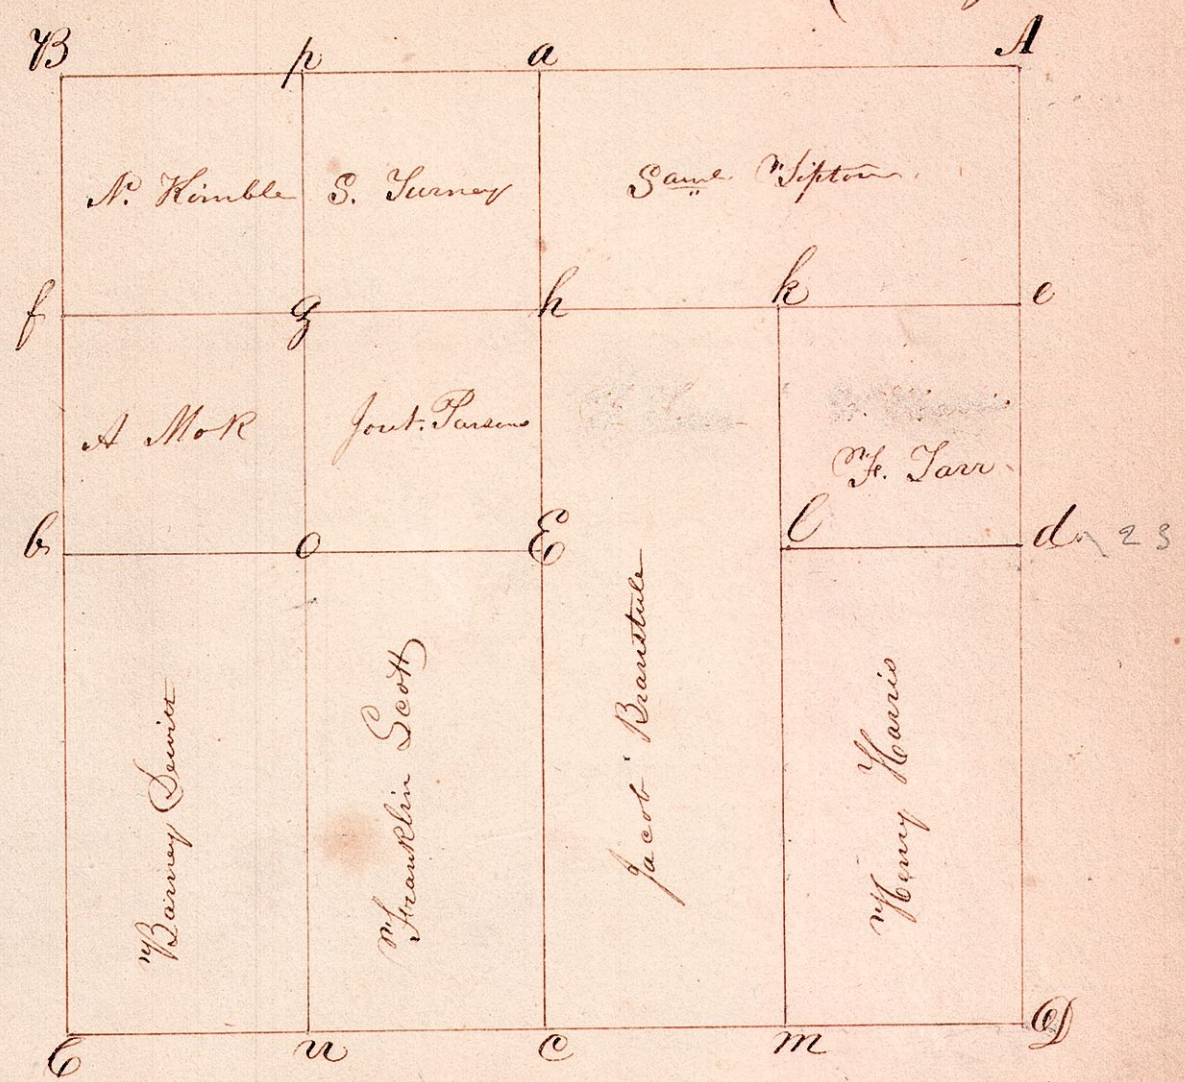 B p a A
N. Kimble S. Turney Saml. Tipton
f g h k e
A Mok Jont. Parsons
F. Tarr
b o E l d 23
Barney Dewitt
Franklin Scott
Jacob Branstule
Henry Harris
C n c m D